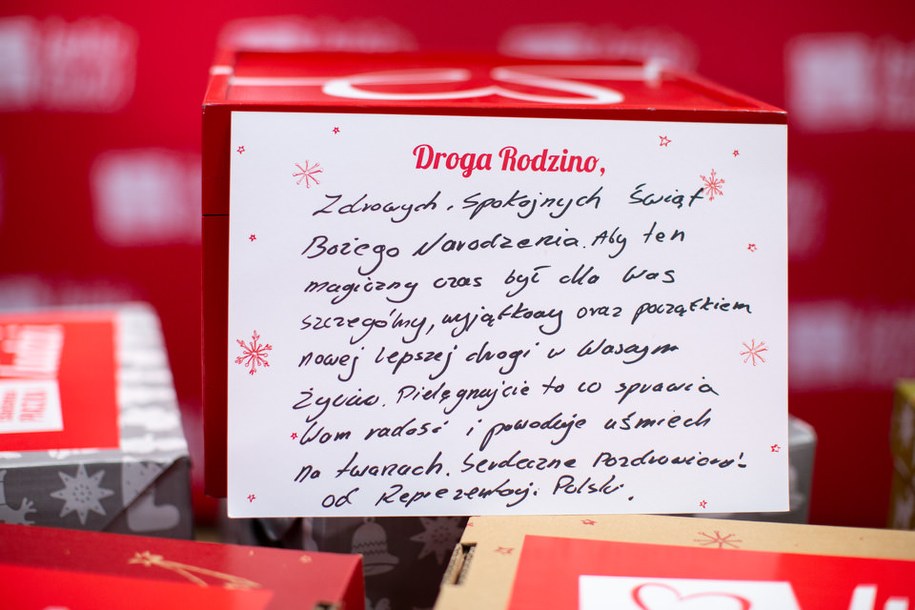 Droga Rodzino,
Zdrowych, Spokojnych Świąt
Bożego Narodzenia. Aby ten
magiczny czas był dla Was
szczególny, wyjątkowy oraz początkiem
nowej lepszej drogi w Waszym
życiu. Pielęgnujcie to co sprawia
Wam radość i powoduje uśmiech
na twarzach. Serdeczne Pozdrowienia!
od Reprezentacji Polski.